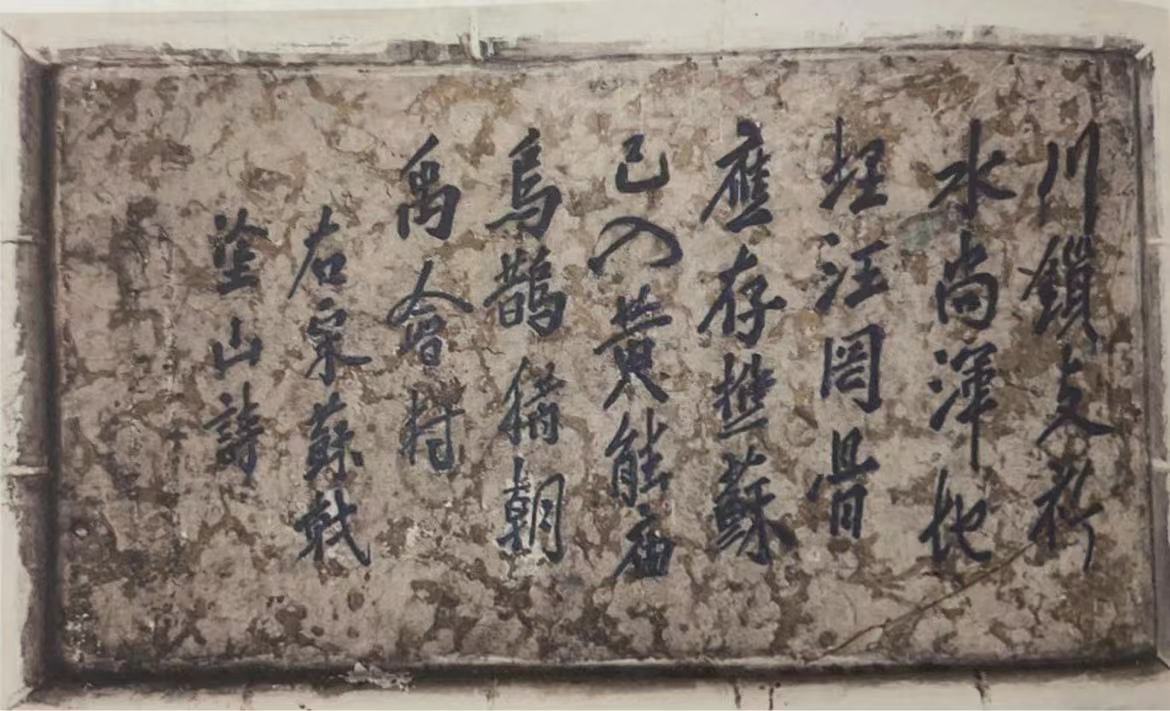 川鎖支祁
水尚渾地
埋汪罔骨
應存樵蘇
已入黄熊庙
烏鵲猶朝
禹會村
右宋蘇軾
塗山詩